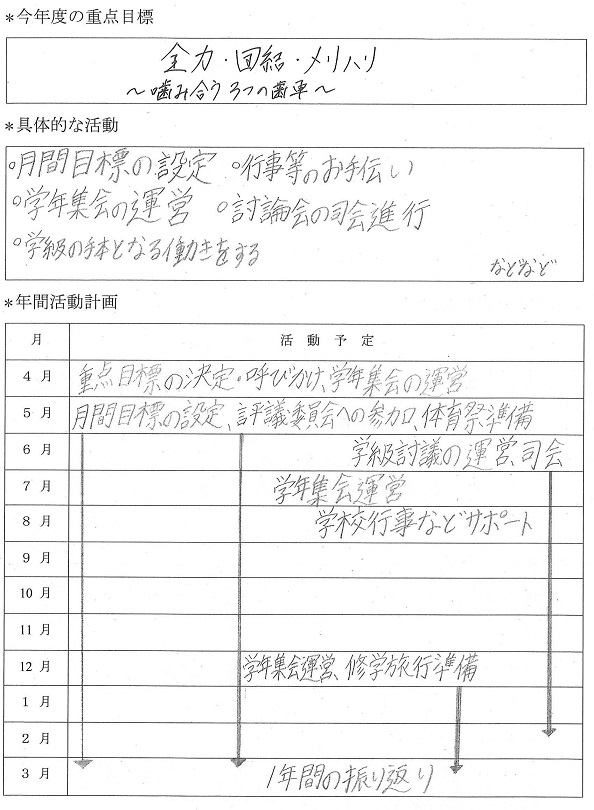 *今年度の重点目標
全力・団結・メリハリ
～噛み合う3つの歯車～
*具体的な活動
○月間目標の設定 ○行事等のお手伝い
○学年集会の運営 ○討論会の司会進行
○学級の手本となる働きをする
などなど
*年間活動計画
月 活動予定
4月 重点目標の決定・呼びかけ、学年集会の運営
5月 月間目標の設定、評議委員会への参加、体育祭準備
6月 学級討議の運営、司会
7月 学年集会運営
8月 学校行事などサポート
9月
10月
11月
12月 学年集会運営、修学旅行準備
1月
2月
3月 1年間の振り返り